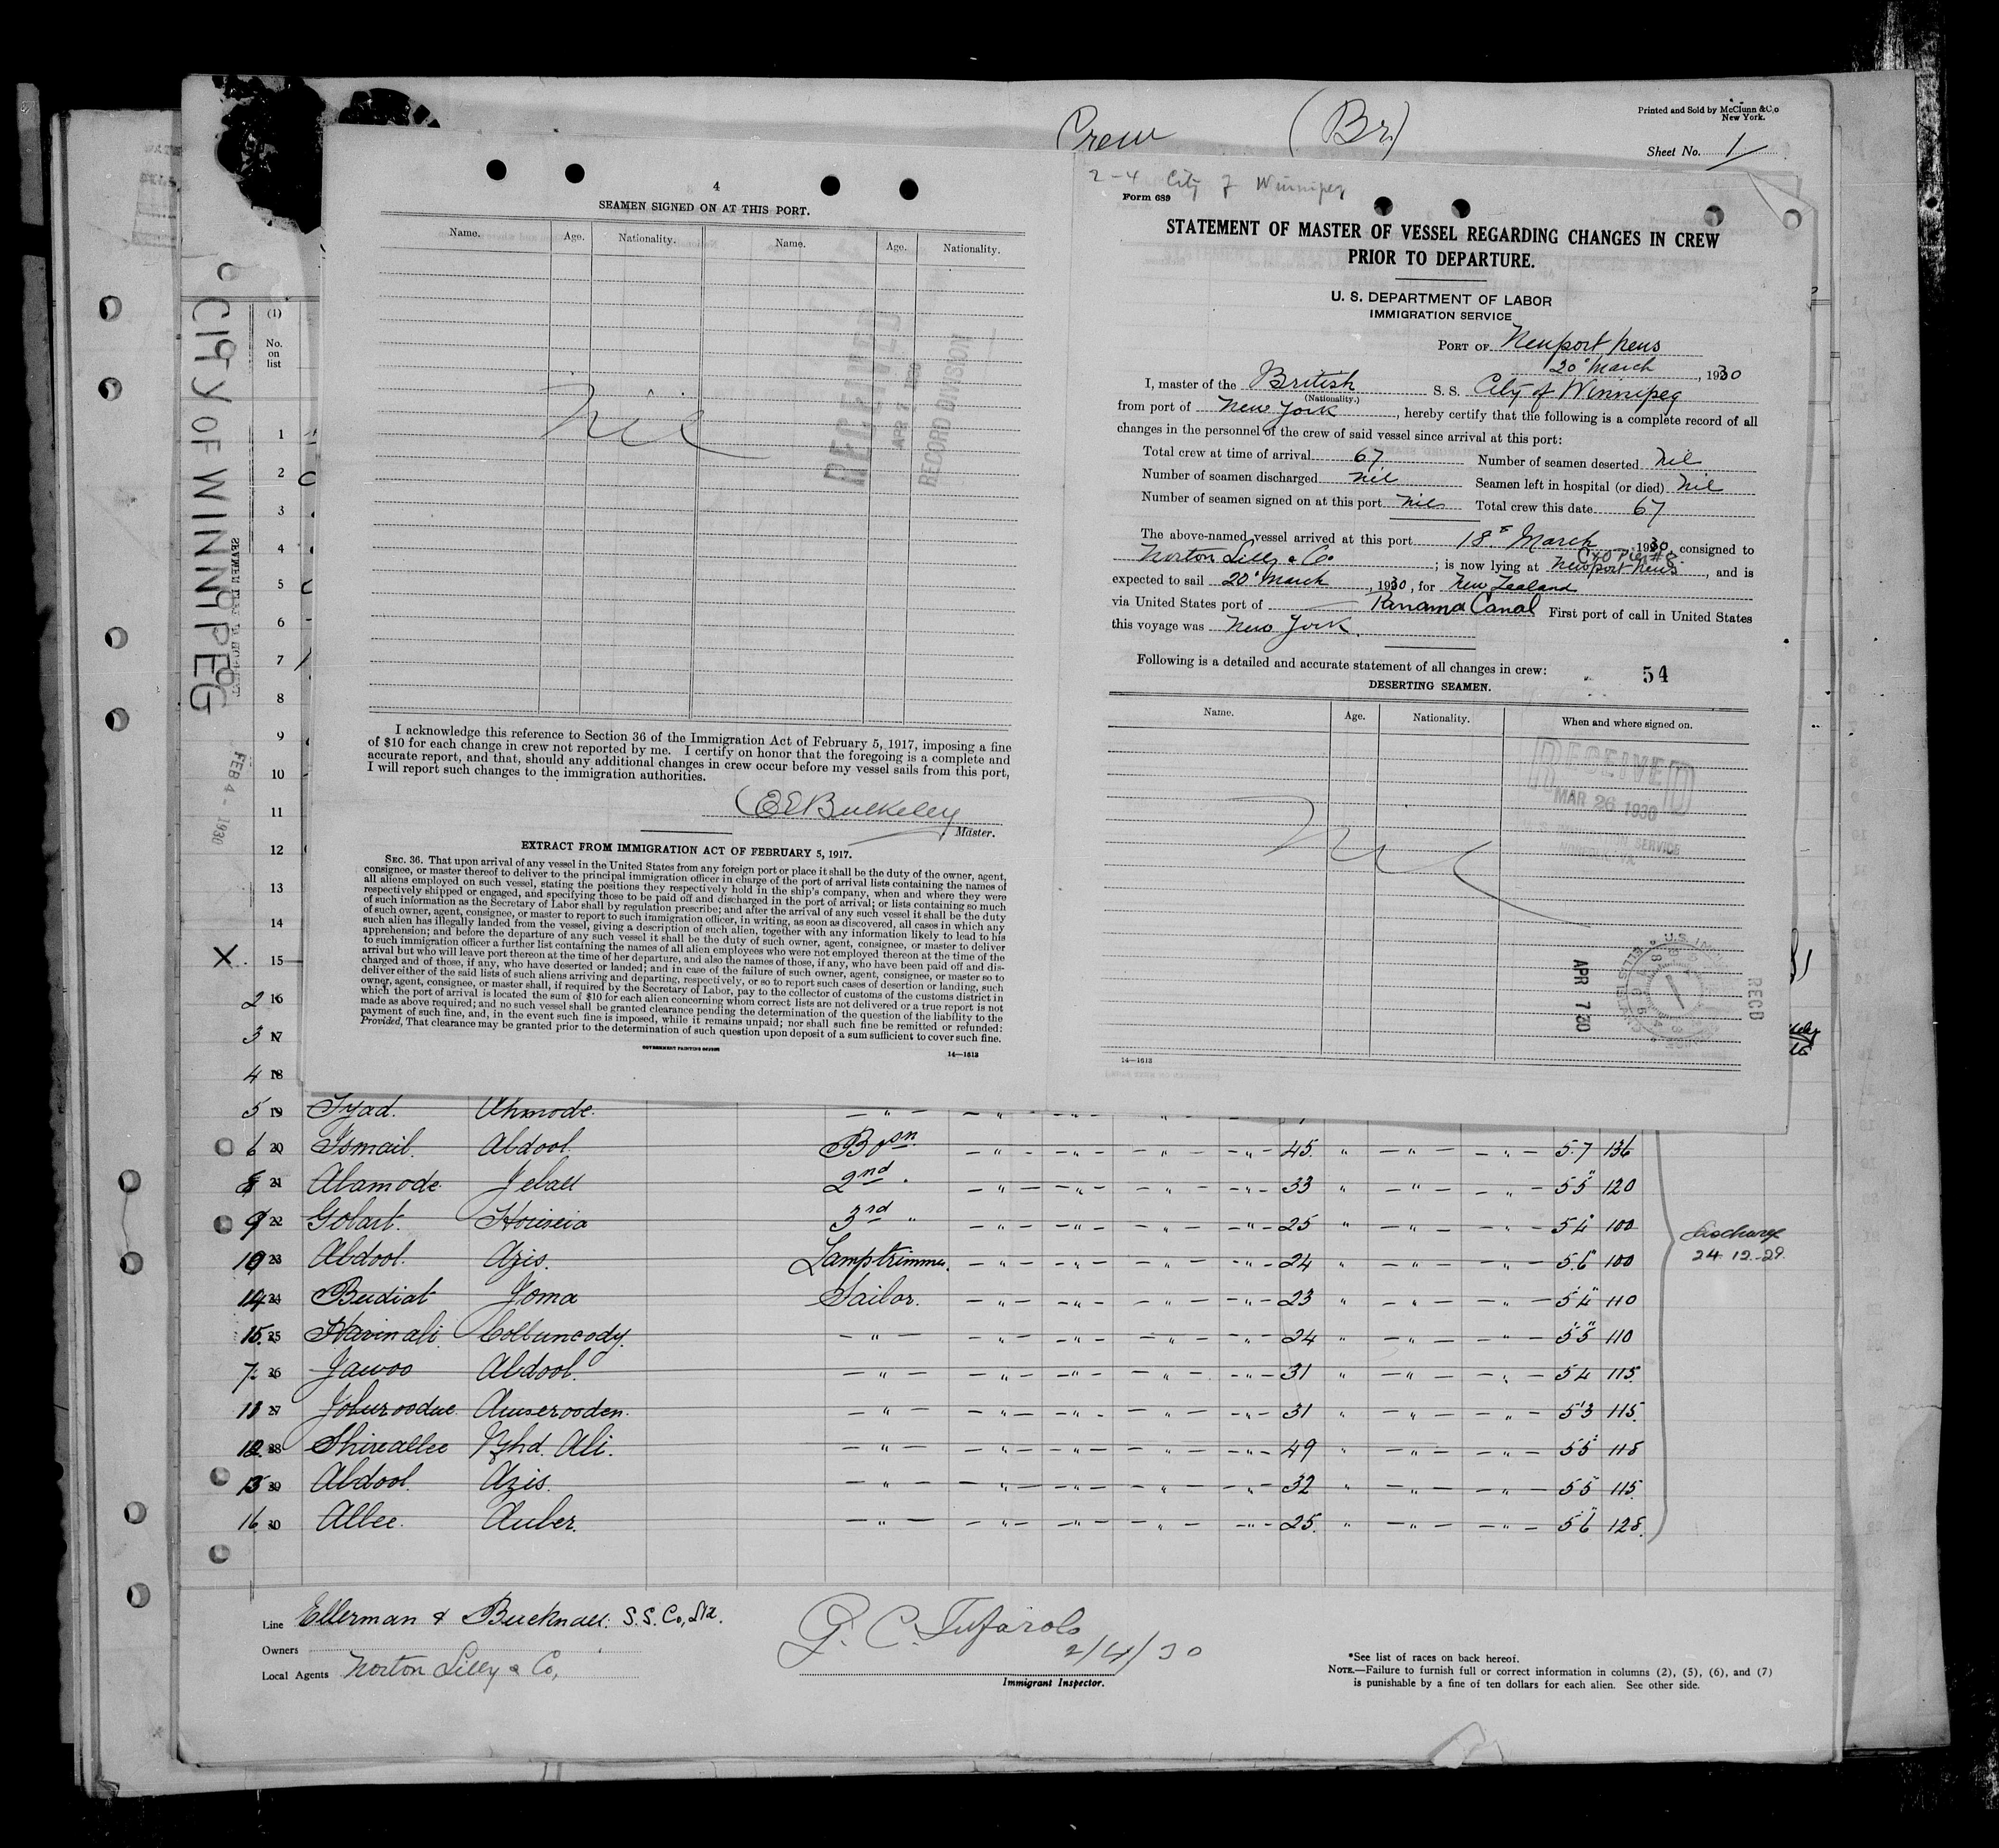 Printed and Sold by McClunn & Co
New York.
Crew (Br.)
Sheet No. 1
4
SEAMEN SIGNED ON AT THIS PORT.
Name. Age. Nationality. Name. Age. Nationality.
Nil
RECEIVED
APR 7 1930
RECORD DIVISION
I acknowledge this reference to Section 36 of the Immigration Act of February 5, 1917, imposing a fine
of $10 for each change in crew not reported by me. I certify on honor that the foregoing is a complete and
accurate report, and that, should any additional changes in crew occur before my vessel sails from this port,
I will report such changes to the immigration authorities.
Bulkeley
Master.
EXTRACT FROM IMMIGRATION ACT OF FEBRUARY 5, 1917.
SEC. 36. That upon arrival of any vessel in the United States from any foreign port or place it shall be the duty of the owner, agent,
consignee, or master thereof to deliver to the principal immigration officer in charge of the port of arrival lists containing the names of
all aliens employed on such vessel, stating the positions they respectively hold in the ship's company, when and where they were
respectively shipped or engaged, and specifying those to be paid off and discharged in the port of arrival; or lists containing so much
of such information as the Secretary of Labor shall by regulation prescribe; and after the arrival of any such vessel it shall be the duty
of such owner, agent, consignee, or master to report to such immigration officer, in writing, as soon as discovered, all cases in which any
such alien has illegally landed from the vessel, giving a description of such alien, together with any information likely to lead to his
apprehension; and before the departure of any such vessel it shall be the duty of such owner, agent, consignee, or master to deliver
to such immigration officer a further list containing the names of all alien employees who were not employed thereon at the time of the
arrival but who will leave port thereon at the time of her departure, and also the names of those, if any, who have been paid off and dis-
charged and of those, if any, who have deserted or landed; and in case of the failure of such owner, agent, consignee, or master so to
deliver either of the said lists of such aliens arriving and departing, respectively, or so to report such cases of desertion or landing, such
owner, agent, consignee, or master shall, if required by the Secretary of Labor, pay to the collector of customs of the customs district in
which the port of arrival is located the sum of $10 for each alien concerning whom correct lists are not delivered or a true report is not
made as above required; and no such vessel shall be granted clearance pending the determination of the question of the liability to the
payment of such fine, and, in the event such fine is imposed, while it remains unpaid; nor shall such fine be remitted or refunded:
Provided, That clearance may be granted prior to the determination of such question upon deposit of a sum sufficient to cover such fine.
GOVERNMENT PRINTING OFFICE 14—1613
2-4 City of Winnipeg
Form 689
STATEMENT OF MASTER OF VESSEL REGARDING CHANGES IN CREW
PRIOR TO DEPARTURE.
U. S. DEPARTMENT OF LABOR
IMMIGRATION SERVICE
PORT OF Newport News
20 March, 1930
I, master of the British S. S. City of Winnipeg
(Nationality.)
from port of New York, hereby certify that the following is a complete record of all
changes in the personnel of the crew of said vessel since arrival at this port:
Total crew at time of arrival 67 Number of seamen deserted nil
Number of seamen discharged nil Seamen left in hospital (or died) nil
Number of seamen signed on at this port nil Total crew this date 67
The above-named vessel arrived at this port 18 March 1930 consigned to
C&O Pier #8
Norton Lilly & Co; is now lying at Newport News, and is
expected to sail 20 March, 1930, for New Zealand
via United States port of Panama Canal First port of call in United States
this voyage was New York.
Following is a detailed and accurate statement of all changes in crew:
54
DESERTING SEAMEN.
Name. Age. Nationality. When and where signed on.
RECEIVED
MAR 26 1930
IMMIGRATION SERVICE
NORFOLK, VA.
Nil
APR 7 30
RECD
14—1613
CITY OF WINNIPEG
FEB 4 - 1930
(1)
No.
on
list
1
2
3
4
5
6
7
8
9
10
11
12
13
14
X 15
2 16
3 17
4 18
5 19 Syad. Ahmode.
6 20 Ismail. Abdool. Bosn. 45. 5.7 136
8 21 Alamode Jeball 2nd 33 5 5 120
9 22 Gobart. Houseia 3rd 25 5 4 100
10 23 Abdool. Azis. Lamptrimmer. 24 5.6 100
14 24 Budiat Joma Sailor. 23 5 4 110
15 25 24 5 5 110
7 26 Jawoo Abdool. 31 5 4 115
11 27 31 5 3 115
12 28 Shireallee Ali. 49 5 5 118
13 29 Abdool. Azis. 32 5 5 115
16 30 Allee. Auber. 25. 5 6 128.
Discharge
24.12.29.
Line Ellerman & Bucknall S.S. Co, Ltd.
Owners
Local Agents Norton Lilly & Co,
G. C. Tufarolo
2/4/30
Immigrant Inspector.
*See list of races on back hereof.
NOTE.—Failure to furnish full or correct information in columns (2), (5), (6), and (7)
is punishable by a fine of ten dollars for each alien. See other side.